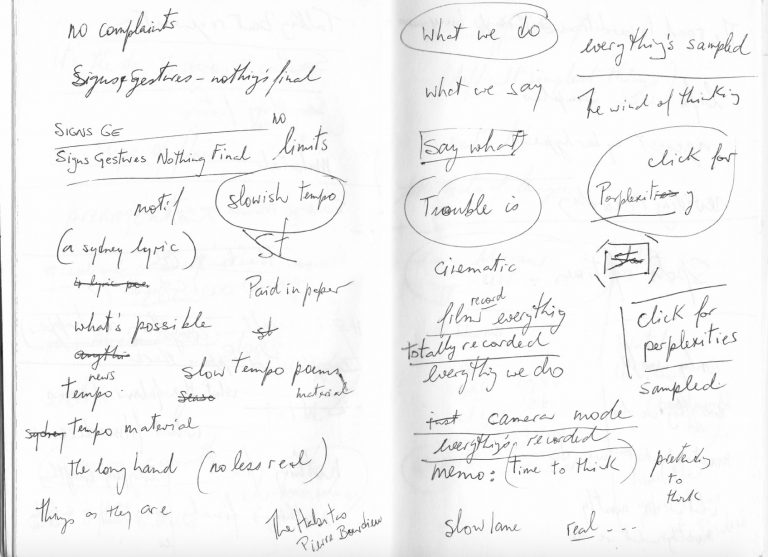 no complaints
Signs, Gestures - nothing's final
SIGNS GE
no
limits
Signs Gestures Nothing Final
motif
slowish tempo
St
(a sydney lyric)
a lyric poe
Paid in paper
what's possible
anythi
st
news
tempo:
slow tempo poems
Senso
material
sydney tempo material
the long hand (no less real)
things as they are
The Habitus
Pierre Bourdieu
What we do
everything's sampled
what we say
The wind of thinking
Say what
click for
Perplexities y
Trouble is
sta
cinematic
record
films everything
totally recorded
everything we do
click for
perplexities
sampled
just camera mode
everything's recorded
memo: (time to think)
pretending
to
think
slow lane
real ....